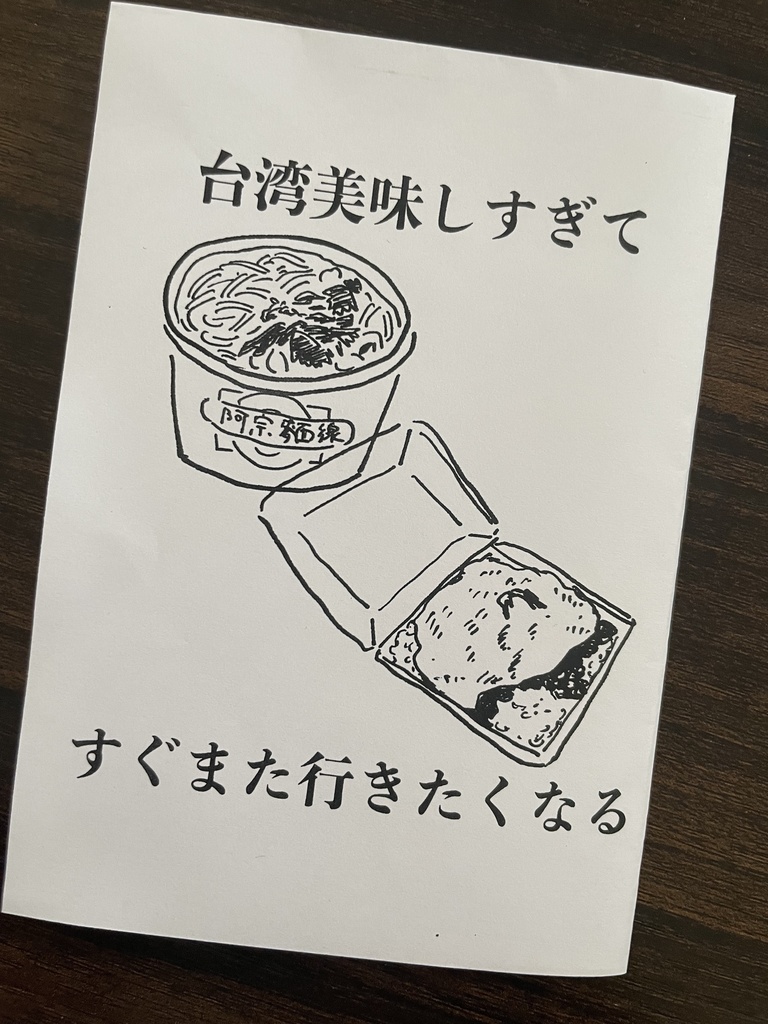 台湾美味しすぎて
阿宗麵線
すぐまた行きたくなる